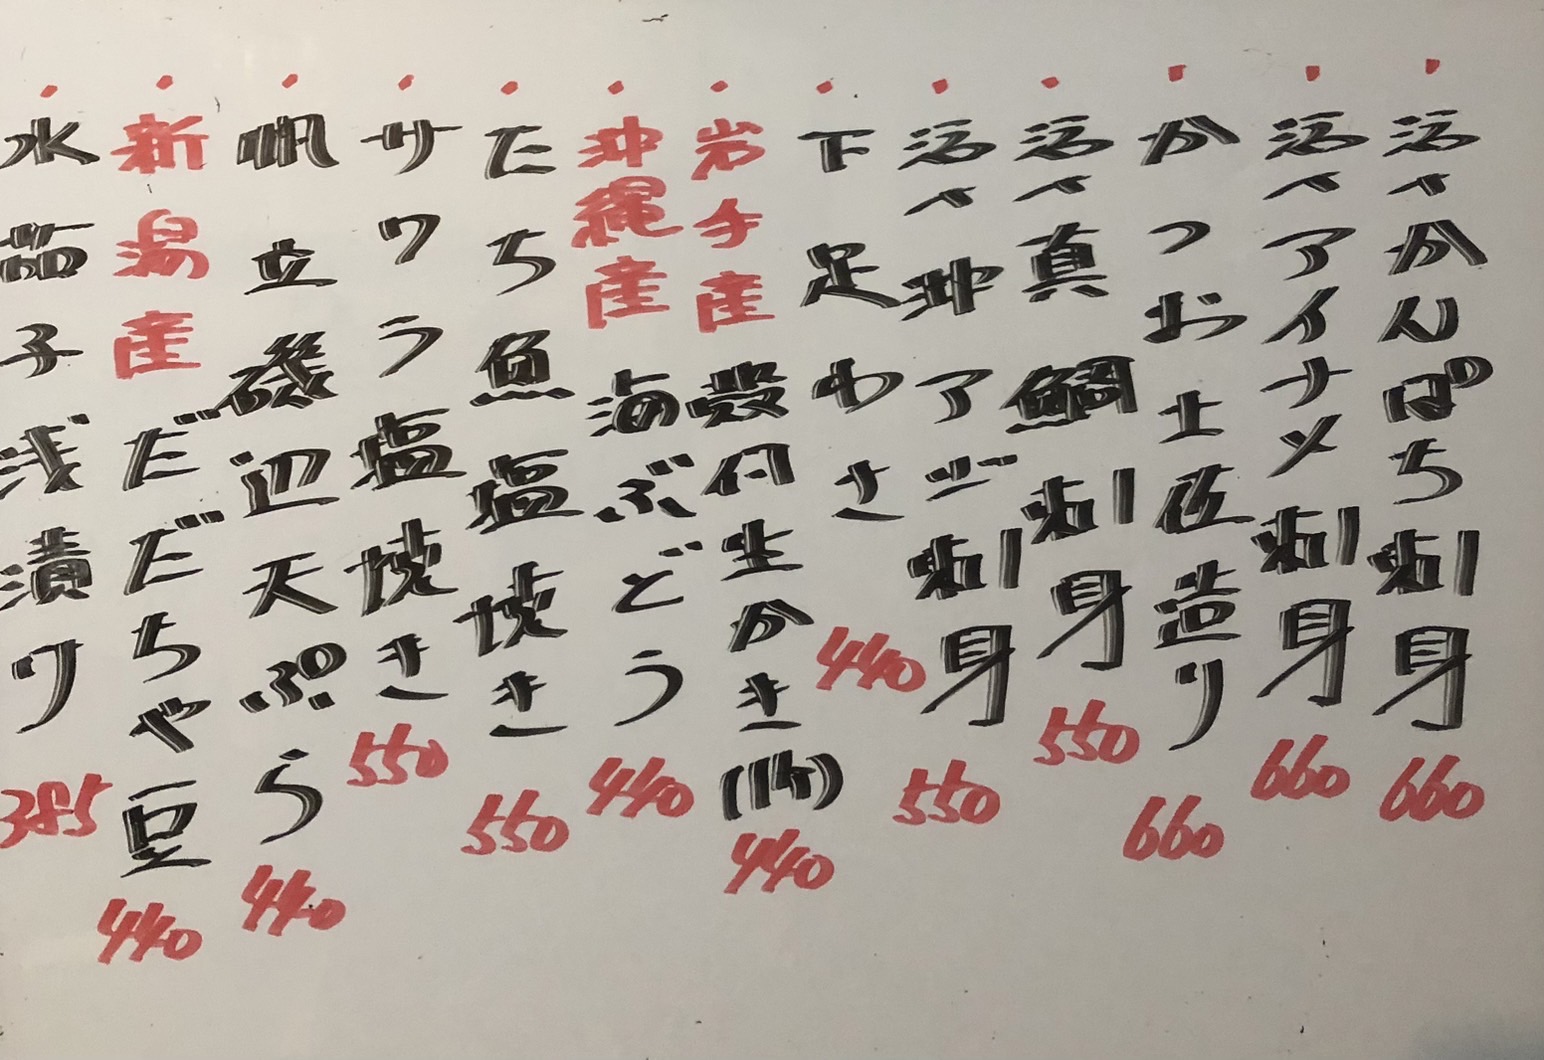 活〆かんぱち刺身 660
活〆アイナメ刺身 660
かつお土佐造り 660
活〆真鯛刺身 550
活〆沖アジ刺身 550
下足わさ 440
岩手産殻付生かき(1ケ) 440
沖縄産海ぶどう 440
たち魚塩焼き 550
サワラ塩焼き 550
帆立磯辺天ぷら 440
新潟産だだちゃ豆 440
水茄子浅漬り 385